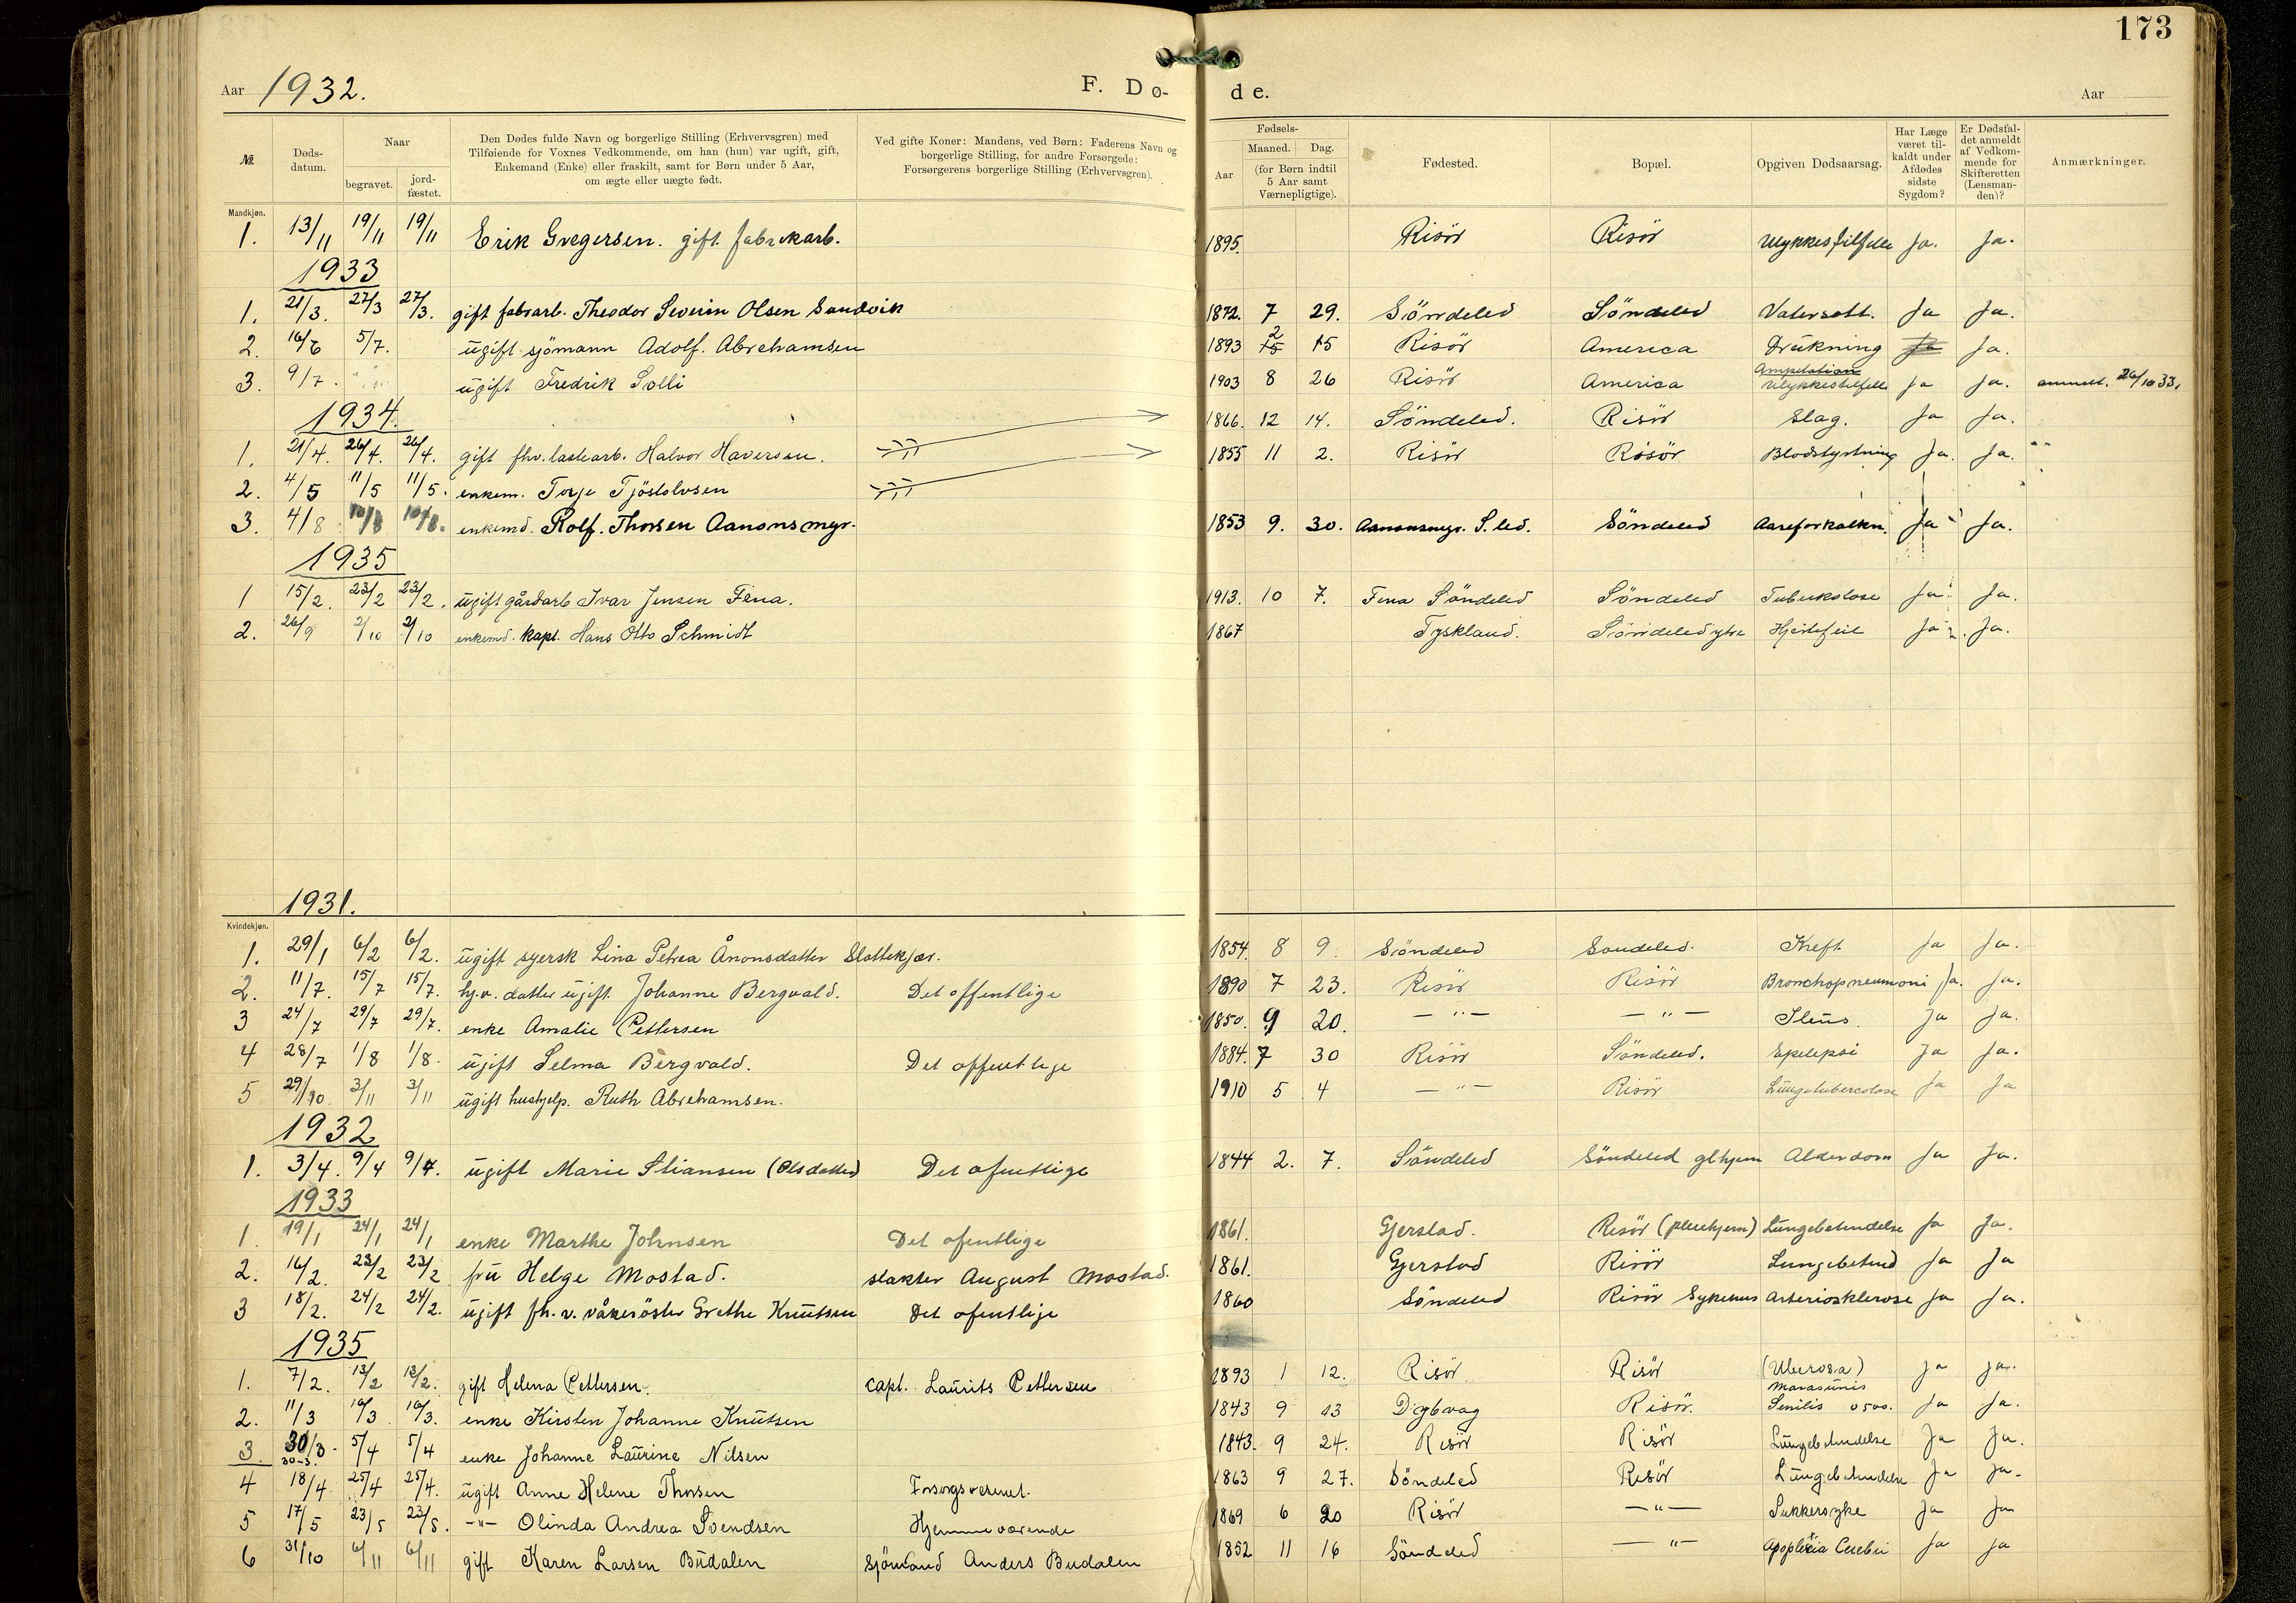 173
Aar 1932. F. Dø- de. Aar
№ Døds-datum. Naar begravet. jord-fæstet. Den Dødes fulde Navn og borgerlige Stilling (Erhvervsgren) med Tilføiende for Voxnes Vedkommende, om han (hun) var ugift, gift, Enkemand (Enke) eller fraskilt, samt for Børn under 5 Aar, om ægte eller uægte født. Ved gifte Koner: Mandens, ved Børn: Faderens Navn og borgerlige Stilling, for andre Forsørgede: Forsørgerens borgerlige Stilling (Erhvervsgren). Fødsels- Aar Maaned. Dag. (for Børn indtil 5 Aar samt Værnepligtige). Fødested. Bopæl. Opgiven Dødsaarsag. Har Læge været til-kaldt under Afdødes sidste Sygdom? Er Dødsfal-det anmeldt af Vedkom-mende for Skifteretten (Lensman-den)? Anmærkninger.
Mandkjøn.
1. 13/11 19/11 19/11 Erik Gregersen. gift fabrikarb. 1895. Risör Risör Ulykkestilfelle Ja. Ja.
1933
1. 21/3. 27/3 27/3. gift fabrarb. Theodor Severin Olsen Sandvik 1872. 7 29. Söndeled Söndeled Vatersott. Ja Ja.
2. 16/6 5/7. ugift sjömann Adolf. Abrehamsen 1893 2 15 15 Risör America Drukning Ja Ja.
3. 9/7. ugift Fredrik Solli 1903 8 26 Risör America Ampetation Ulykkestilfelle Ja Ja. anmelt. 26/10 33.
1934. 1866. 12 14. Söndeled. Risör Slag. Ja Ja.
1. 21/4. 26/4. 26/4. gift fhv. lastearb. Halvor Haversen. 1855 11 2. Risör Risör Blodstyrtning Ja. Ja.
2. 4/5 11/5 11/5. enkem. Torje Tjöstolvsen
3. 4/8 10/8 10/8. enkemd. Rolf. Thorsen Aanonsmyr. 1853 9. 30. Aanonsmyr. S. led. Söndeled Aareforkalkn. Ja Ja.
1935
1 15/2. 23/2 23/2. ugift gårdarb Ivar Jensen Fena. 1913. 10 7. Fena Söndeled Söndeled Tuberkolose Ja. Ja.
2. 26/9 2/10 2/10 enkemd. kapt. Hans Otto Schmidt 1867 Tyskland. Söndeled ytre Hjertefeil Ja Ja.
1931.
Kvindekjøn.
1. 29/1 6/2 6/2. ugift syersk Lina Petrea Ånonsdatter Slottekjær. 1854. 8 9. Söndeled Sondeled. Kreft Ja Ja.
2. 11/7. 15/7 15/7. hj.v. datter ugift. Johanne Bergvald. Det offentlige 1890 7 23. Risör Risör Bronchopneumoni Ja. Ja.
3 24/7 29/7 29/7. enke Amalie Pettersen 1850. 9 20. — " — — " — Ileus. Ja Ja.
4 28/7 1/8 1/8. ugift Selma Bergvald. Det offentlige 1884. 7 30 Risör Söndeled. Epelepsi Ja Ja.
5 29/10 3/11 3/11 ugift hushjelp. Ruth Abrehamsen. 1910 5 4 — " — Risör Lungetubercolose Ja Ja
1932
1. 3/4. 9/4 9/4. ugift Marie Stiansen (Olsdatter) Det ofentlige 1844 2. 7. Söndeled Söndeled glhjem Alderdom Ja Ja.
1933
1. 19/1 24/1 24/1 enke Marthe Johnsen Det ofentlige 1861. Gjerstad. Risör (pleiehjem) Lungebetendelse Ja Ja.
2. 16/2. 23/2 23/2 fru Helge Mostad. slakter August Mostad. 1861. Gjerstad Risör Lungebetend Ja Ja
3 18/2. 24/2 24/2. ugift fh. v. våkeröster Grethe Knutsen Det ofentlige 1860 Söndeled Risör Sykehus Arteriosklerose Ja Ja.
1935
1. 7/2. 13/2 13/2. gift Helena Pettersen. capt. Laurits Pettersen 1893 1 12. Risör Risör (Uberosa) Ja Ja.
2. 11/3 16/3 16/3. enke Kirsten Johanne Knutsen 1843 9 13 Dybvag Risör. Marasimis Senilis Ja Ja.
3. 30/3. 30-3. 5/4 5/4 enke Johanne Laurine Nilsen 1843. 9 24. Risör Risör Lungebetendelse Ja Ja.
4 18/4 25/4 25/4. ugift Anne Helene Thorsen Forsorgsvesenet. 1863 9 27. Söndeled Risör Lungebetendelse Ja Ja.
5 17/5 23/5 23/5. —"— Olinda Andrea Svendsen Hjemmeværende 1869 6 20 Risör —"— Sukkersyke Ja Ja
6 31/10 6/11 6/11 gift Karen Larsen Budalen sjömand Anders Budalen 1852 11 16 Söndeled —"— Apoplexia Cerebri Ja Ja